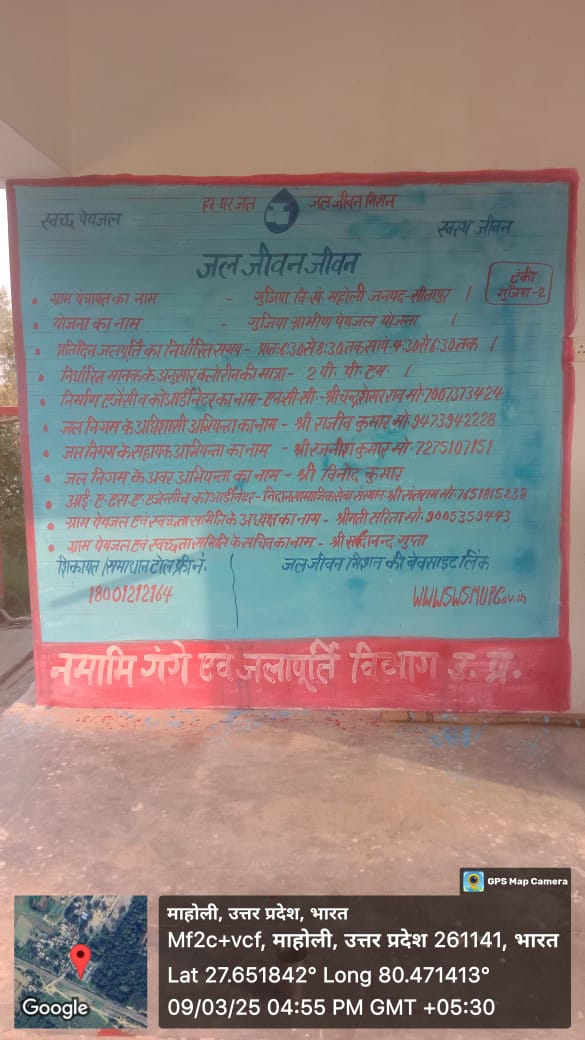 हर घर जल जल जीवन मिशन
स्वच्छ पेयजल
स्वस्थ जीवन
जल जीवन जीवन
टंकी
गुजिया-2
• ग्राम पंचायत का नाम - गुजिया वि. खं. महोली जनपद-सीतापुर ।
• योजना का नाम - गुजिया ग्रामीण पेयजल योजना ।
• प्रतिदिन जलपूर्ति का निर्धारित समय - प्रातः 6:30 से 8:30 तक सायं 4:30 से 6:30 तक ।
• निर्धारित मानक के अनुसार क्लोरीन की मात्रा - 2 पी. पी. एम. ।
• निर्माण एजेंसी व कोआर्डिनेटर का नाम - एन. सी. सी. - श्री चन्द्रशेखर राव मो: 7007373424
• जल निगम के अधिशासी अभियन्ता का नाम - श्री राजीव कुमार मो: 9473942228
• जल निगम के सहायक अभियन्ता का नाम - श्री रजनीश कुमार मो: 7275107151
• जल निगम के अवर अभियन्ता का नाम - श्री विनोद कुमार
• आई. ए. एस. ए. एजेन्सी व कोआर्डिनेटर - निदान सामाजिक सेवा संस्थान - श्री सतराम मो: 7651815238
• ग्राम पेयजल एवं स्वच्छता समिति के अध्यक्ष का नाम - श्रीमती सरिता मो: 9005359443
• ग्राम पेयजल एवं स्वच्छता समिति के सचिव का नाम - श्री गुप्ता
शिकायत / समाधान टोल फ्री नं.
जल जीवन मिशन की बेवसाइट लिंक
18001212164
WWWSWSMUPGov.in
नमामि गंगे एवं जलापूर्ति विभाग उ. प्र.
GPS Map Camera
माहोली, उत्तर प्रदेश, भारत
Mf2c+vcf, माहोली, उत्तर प्रदेश 261141, भारत
Lat 27.651842° Long 80.471413°
09/03/25 04:55 PM GMT +05:30
Google